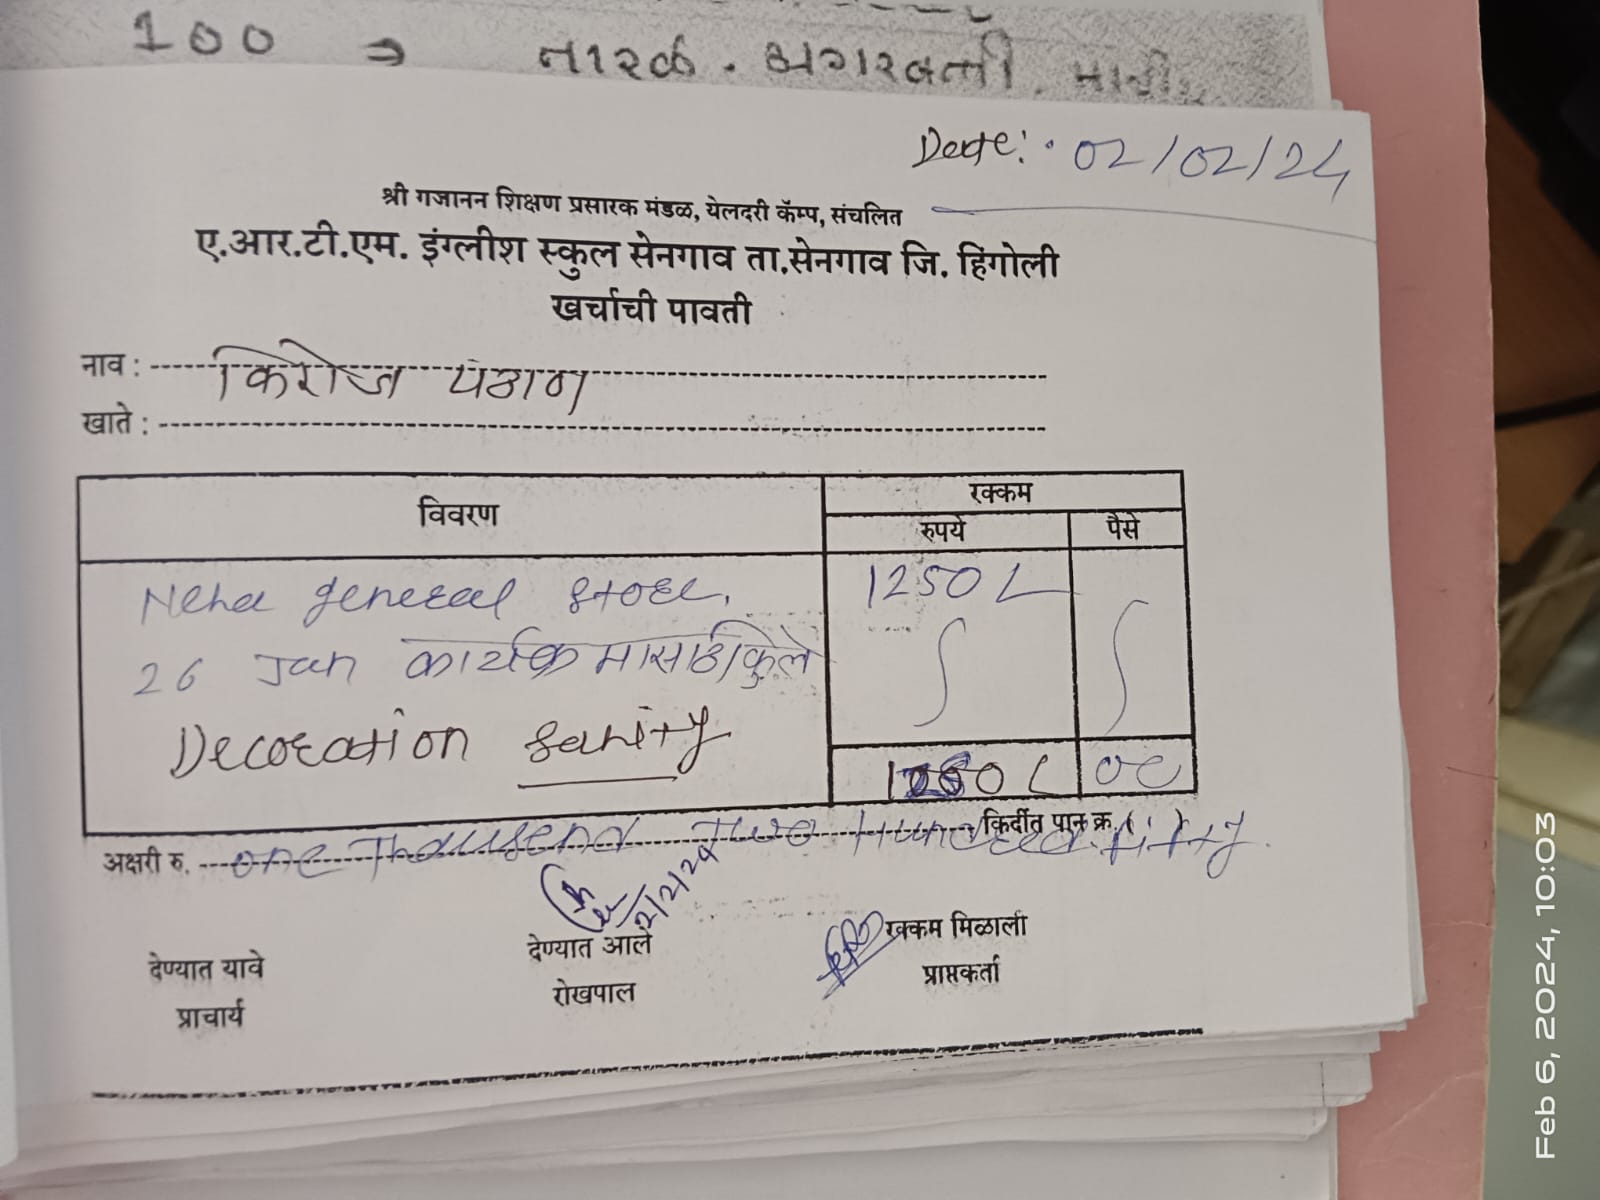 100 → नारळ. अगरबत्ती.
Date: 02/02/24
श्री गजानन शिक्षण प्रसारक मंडळ, येलदरी कॅम्प, संचलित
ए.आर.टी.एम. इंग्लीश स्कुल सेनगाव ता.सेनगाव जि. हिंगोली
खर्चाची पावती
नाव : किरोज पठाण
खाते :
विवरण
रक्कम
रुपये पैसे
Neha general store. 1250
26 Jan कार्यक्रमासाठी फुले
Decoration
1250 00
किर्दीत पान क्र. ( )
अक्षरी रु. one Thousend Two Hundred fifty.
2/2/24
देण्यात यावे देण्यात आले रक्कम मिळाली
प्राचार्य रोखपाल प्राप्तकर्ता
Feb 6, 2024, 10:03